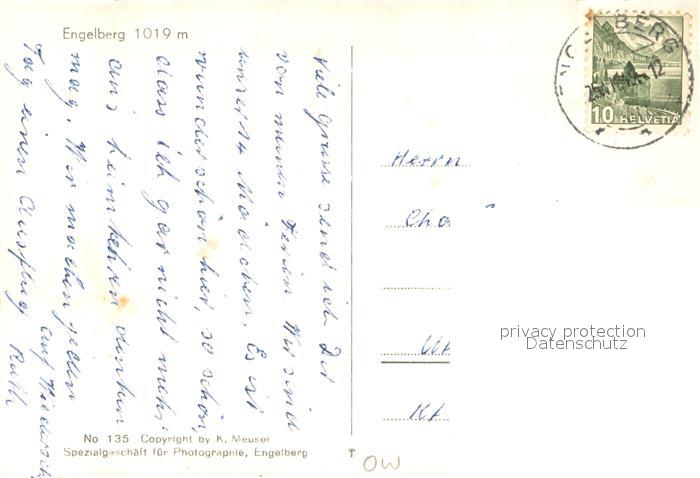 Engelberg 1019 m
Viele Grüsse sendet ich Dir
von meinen Ferien Wir sind
unser 14 Mädchen. Es ist
wunderschön hier, so schön,
dass ich gar nicht mehr
ans heimkehren denken
mag. Wir machen jeden
Tag einen Ausflug
auf Wiederseh
Ruth
No 135 Copyright by K. Meuser
Spezialgeschäft für Photographie, Engelberg
ENGELBERG
12
10 HELVETIA
Herrn
Cha
privacy protection
Datenschutz
OW